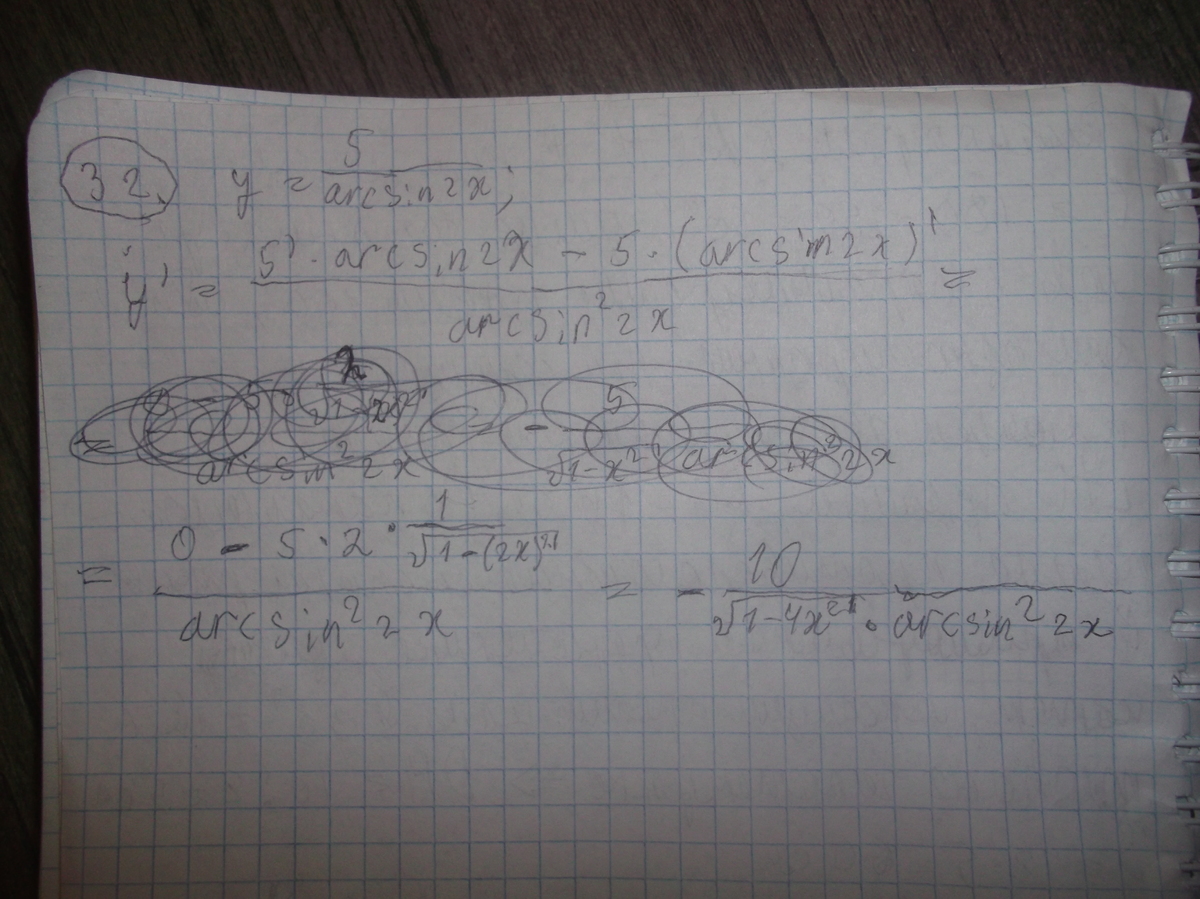 32. y = 5/arcsin2x;
y' = (5' · arcsin2x - 5 · (arcsin2x)')/arcsin²2x =
= (0 - 5 · 2 · 1/√(1-(2x)²))/arcsin²2x = - 10/(√(1-4x²) · arcsin²2x)